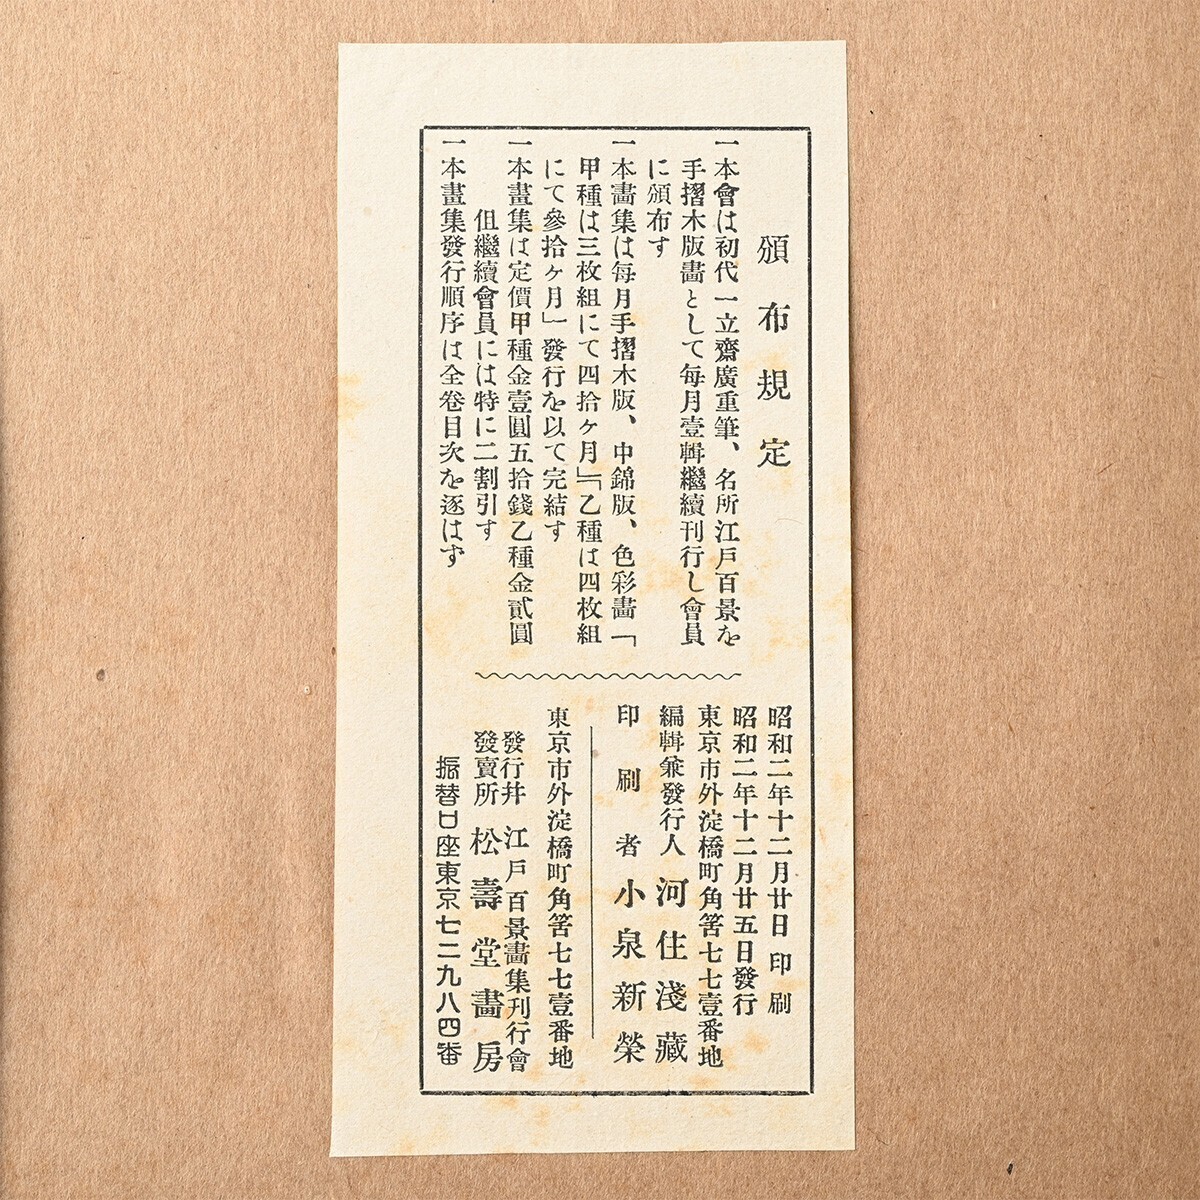 頒布規定
一本會は初代一立齋廣重筆、名所江戸百景を
手摺木版畵として每月壹輯繼續刊行し會員
に頒布す
一本畵集は每月手摺木版、中錦版、色彩畵「
甲種は三枚組にて四拾ヶ月」「乙種は四枚組
にて參拾ヶ月」發行を以て完結す
一本畫集は定價甲種金壹圓五拾錢乙種金貳圓
但繼續會員には特に二割引す
一本畫集發行順序は全卷目次を逐はず
昭和二年十二月廿日印刷
昭和二年十二月廿五日發行
東京市外淀橋町角筈七七壹番地
編輯兼發行人 河住淺藏
印刷者 小泉新榮
東京市外淀橋町角筈七七壹番地
發行幷 江戸百景畵集刊行會
發賣所 松壽堂畵房
振替口座東京七二九八四番